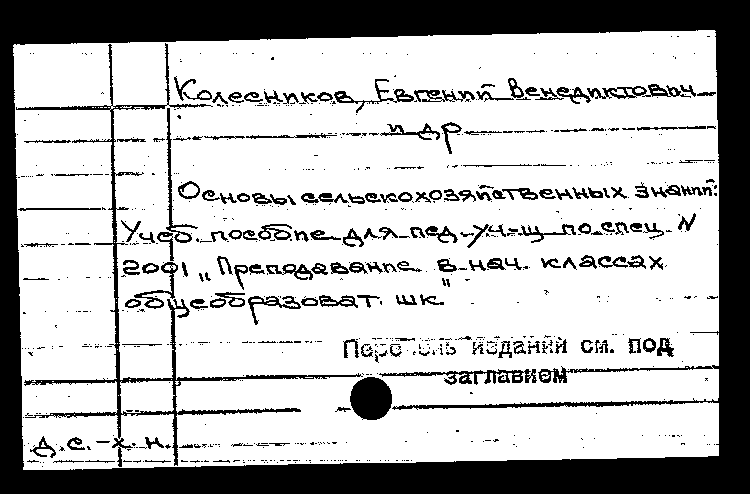 Колесников, Евгений Венедиктович
и др
Основы сельскохозяйственных знаний:
Учеб. пособие для пед. уч-щ по спец. N
2001 „Преподавание в нач. классах
общеобразоват. шк."
издании см. под
заглавием
д.с.-х.н.